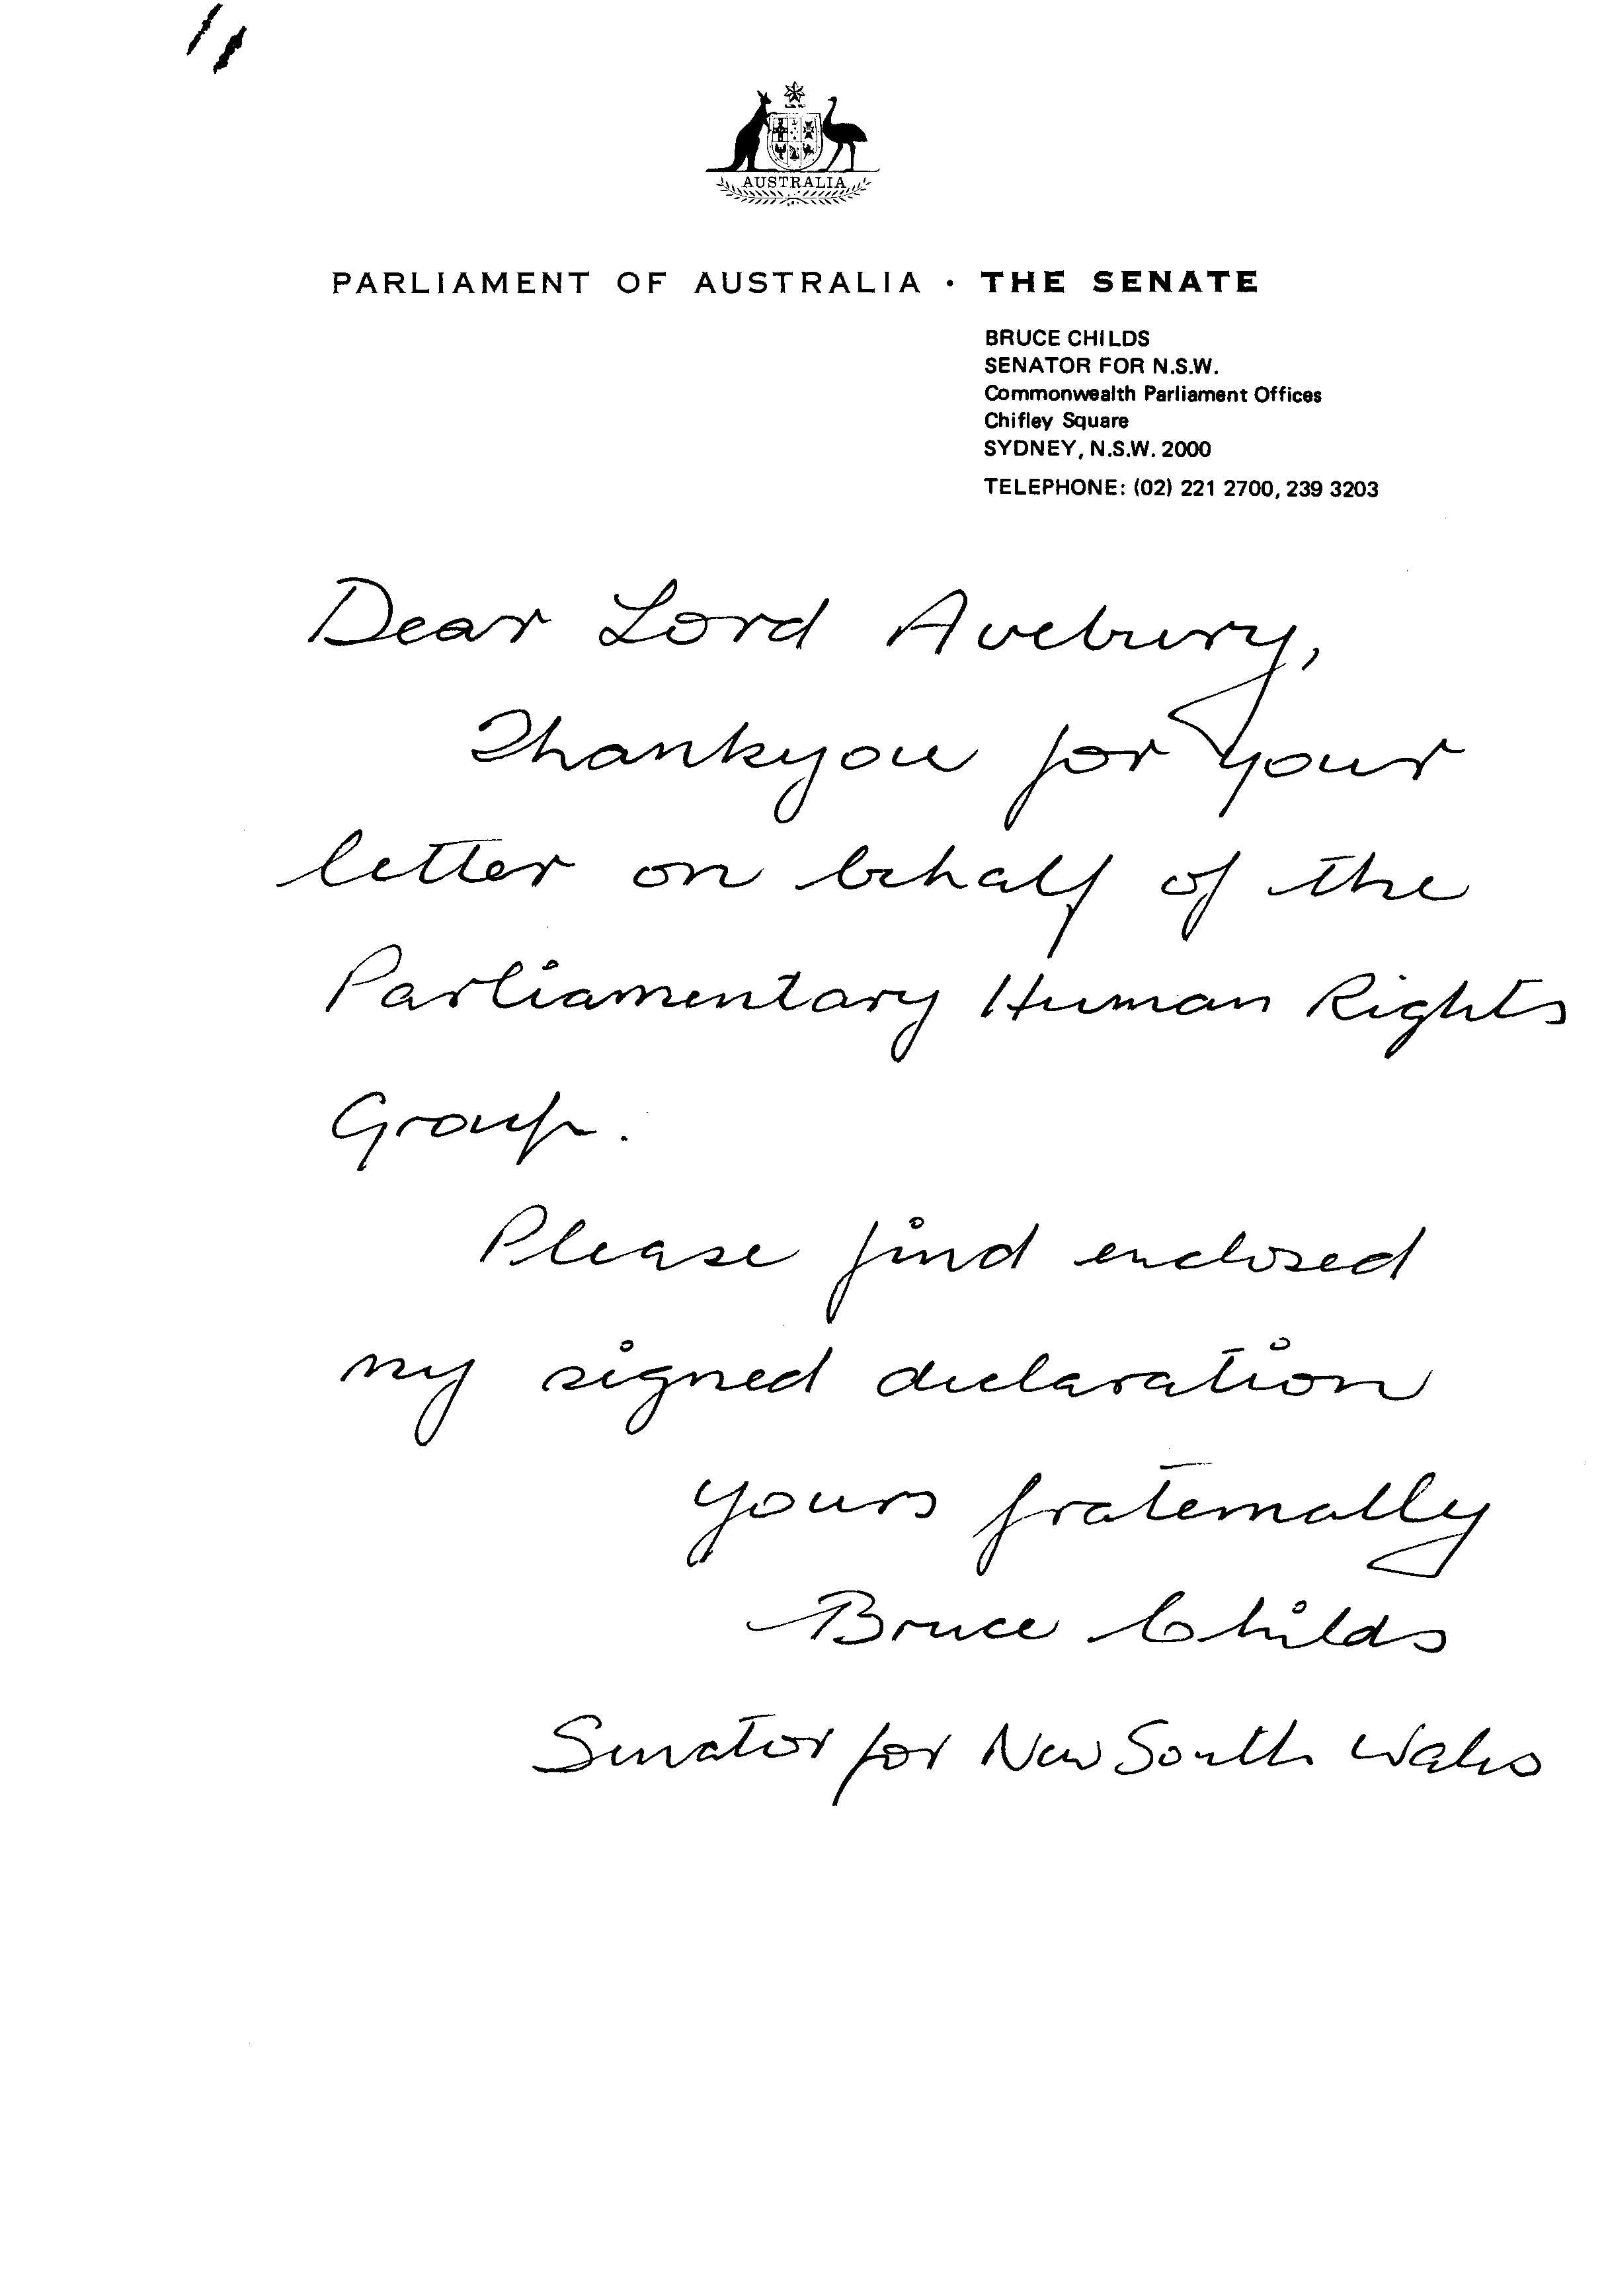 AUSTRALIA
PARLIAMENT OF AUSTRALIA · THE SENATE
BRUCE CHILDS
SENATOR FOR N.S.W.
Commonwealth Parliament Offices
Chifley Square
SYDNEY, N.S.W. 2000
TELEPHONE: (02) 221 2700, 239 3203
Dear Lord Avebury,
Thankyou for your
letter on behalf of the
Parliamentary Human Rights
Group.
Please find enclosed
my signed declaration
yours fraternally
Bruce Childs
Senator for New South Wales